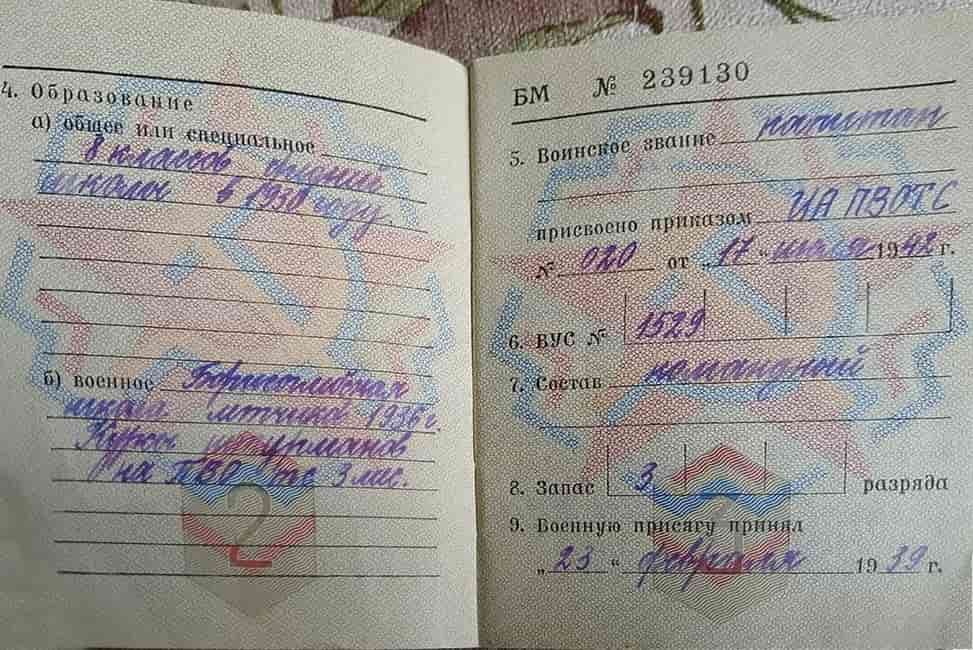 4. Образование
а) общее или специальное
8 классов средней
школы в 1930 году.
б) военное Борисоглебская
школа летчиков 1936 г.
Курсы штурманов
на ПВО 3 мес.
2
БМ № 239130
5. Воинское звание капитан
присвоено приказом ИА ПВОТС
№ 020 от „17“ июля 1942 г.
6. ВУС № 1529
7. Состав командный
8. Запас 3 разряда
9. Военную присягу принял
„23“ февраля 1939 г.